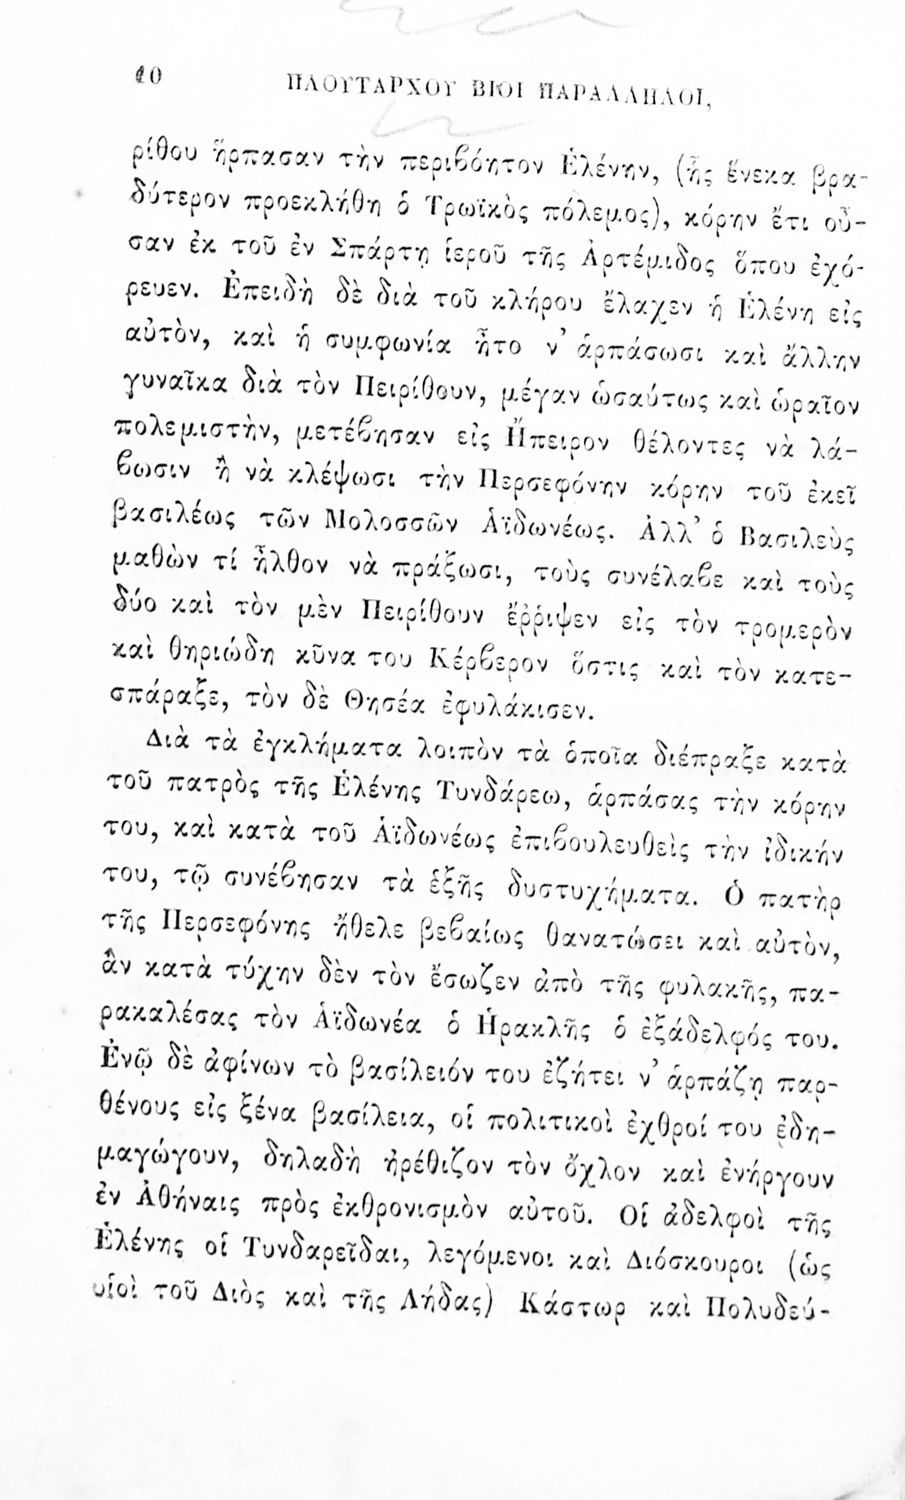 10 ΠΛΟΥΤΑΡΧΟΥ ΒΙΟΙ ΠΑΡΑΛΛΗΛΟΙ,
ρίθου ἥρπασαν τὴν περιβόητον Ἑλένην, (ἧς ἕνεκα βρα-
δύτερον προεκλήθη ὁ Τρωϊκὸς πόλεμος), κόρην ἔτι οὖ-
σαν ἐκ τοῦ ἐν Σπάρτῃ ἱεροῦ τῆς Ἀρτέμιδος ὅπου ἐχό-
ρευεν. Ἐπειδὴ δὲ διὰ τοῦ κλήρου ἔλαχεν ἡ Ἑλένη εἰς
αὐτὸν, καὶ ἡ συμφωνία ἦτο ν’ ἁρπάσωσι καὶ ἄλλην
γυναῖκα διὰ τὸν Πειρίθουν, μέγαν ὡσαύτως καὶ ὡραῖον
πολεμιστὴν, μετέβησαν εἰς Ἤπειρον θέλοντες νὰ λά-
βωσιν ἢ νὰ κλέψωσι τὴν Περσεφόνην κόρην τοῦ ἐκεῖ
βασιλέως τῶν Μολοσσῶν Ἀϊδωνέως. Ἀλλ’ ὁ Βασιλεὺς
μαθὼν τί ἦλθον νὰ πράξωσι, τοὺς συνέλαβε καὶ τοὺς
δύο καὶ τὸν μὲν Πειρίθουν ἔῤῥιψεν εἰς τὸν τρομερὸν
καὶ θηριώδη κῦνα του Κέρβερον ὅστις καὶ τὸν κατε-
σπάραξε, τὸν δὲ Θησέα ἐφυλάκισεν.
Διὰ τὰ ἐγκλήματα λοιπὸν τὰ ὁποῖα διέπραξε κατὰ
τοῦ πατρὸς τῆς Ἑλένης Τυνδάρεω, ἁρπάσας τὴν κόρην
του, καὶ κατὰ τοῦ Ἀϊδωνέως ἐπιβουλευθεὶς τὴν ἰδικήν
του, τῷ συνέβησαν τὰ ἑξῆς δυστυχήματα. Ὁ πατὴρ
τῆς Περσεφόνης ἤθελε βεβαίως θανατώσει καὶ αὐτὸν,
ἂν κατὰ τύχην δὲν τὸν ἔσωζεν ἀπὸ τῆς φυλακῆς, πα-
ρακαλέσας τὸν Ἀϊδωνέα ὁ Ἡρακλῆς ὁ ἐξάδελφός του.
Ἐνῷ δὲ ἀφίνων τὸ βασίλειόν του ἐζήτει ν’ ἁρπάζῃ παρ-
θένους εἰς ξένα βασίλεια, οἱ πολιτικοὶ ἐχθροί του ἐδη-
μαγώγουν, δηλαδὴ ἠρέθιζον τὸν ὄχλον καὶ ἐνήργουν
ἐν Ἀθήναις πρὸς ἐκθρονισμὸν αὐτοῦ. Οἱ ἀδελφοὶ τῆς
Ἑλένης οἱ Τυνδαρεῖδαι, λεγόμενοι καὶ Διόσκουροι (ὡς
υἱοὶ τοῦ Διὸς καὶ τῆς Λήδας) Κάστωρ καὶ Πολυδεύ-